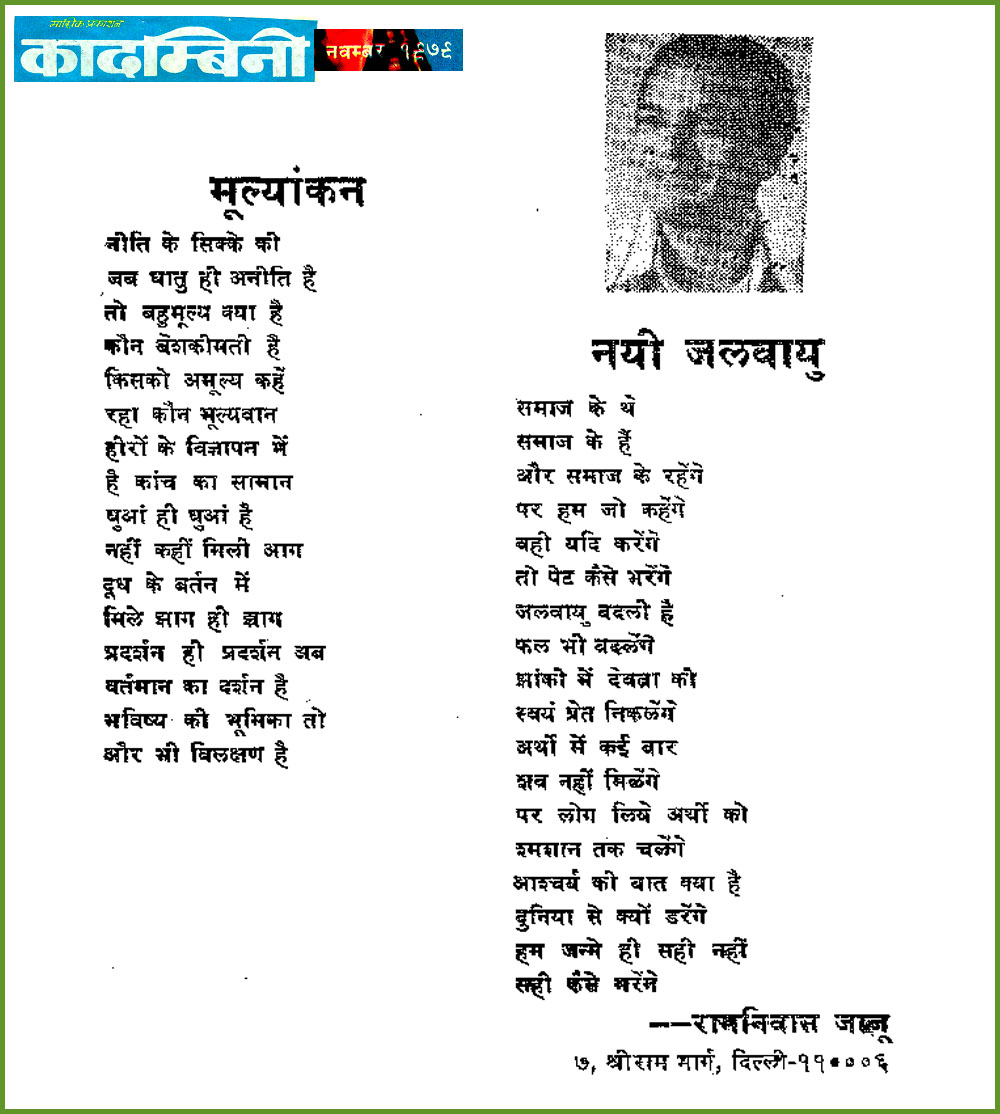 मासिक प्रकाशन
कादम्बिनी
नवम्बर १९७६
मूल्यांकन
नीति के सिक्के की
जब धातु ही अनीति है
तो बहुमूल्य क्या है
कौन बेशकीमती है
किसको अमूल्य कहें
रहा कौन मूल्यवान
हीरों के विज्ञापन में
है कांच का सामान
धुआं ही धुआं है
नहीं कहीं मिली आग
दूध के बर्तन में
मिले झाग ही झाग
प्रदर्शन ही प्रदर्शन अब
वर्तमान का दर्शन है
भविष्य की भूमिका तो
और भी विलक्षण है
नयी जलवायु
समाज के थे
समाज के हैं
और समाज के रहेंगे
पर हम जो कहेंगे
वही यदि करेंगे
तो पेट कैसे भरेंगे
जलवायु बदली है
फल भी बदलेंगे
झांकी में देवता की
स्वयं प्रेत निकलेंगे
अर्थी में कई बार
शव नहीं मिलेंगे
पर लोग लिये अर्थी को
श्मशान तक चलेंगे
आश्चर्य की बात क्या है
दुनिया से क्यों डरेंगे
हम जन्मे ही सही नहीं
सही कैसे मरेंगे
--रामनिवास जाजू
७, श्रीराम मार्ग, दिल्ली-११०००६